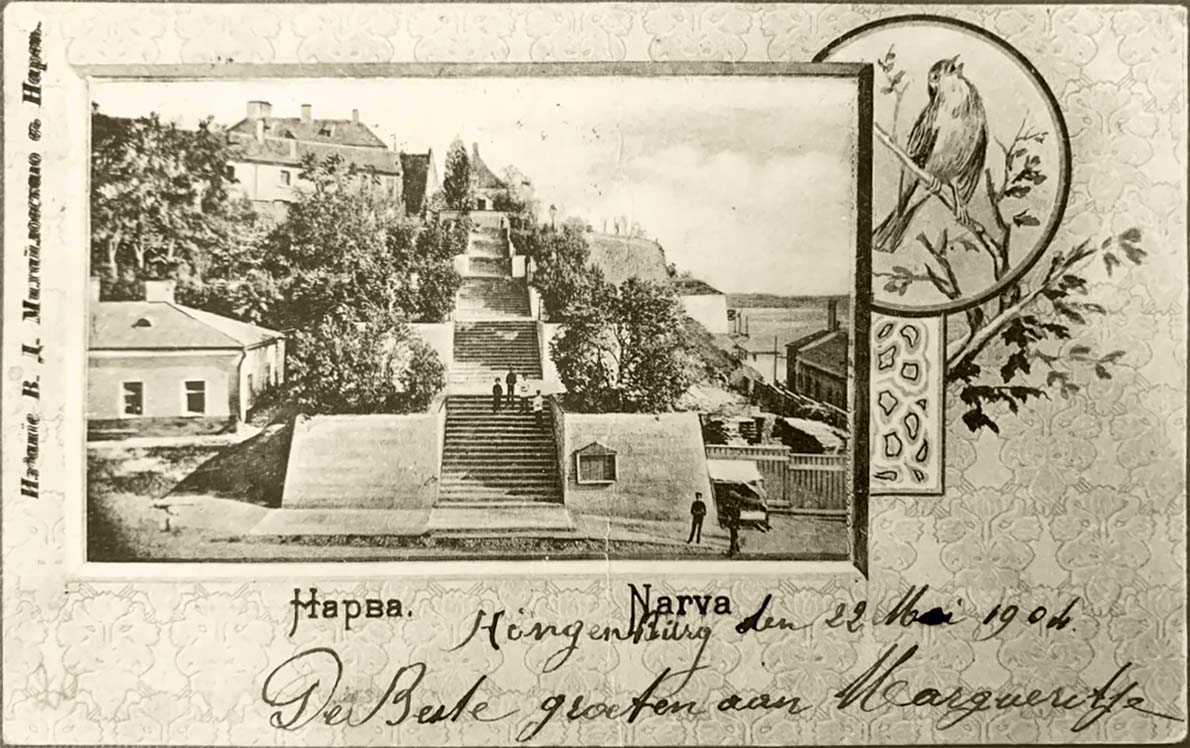 Изданіе В. Д. Михайловскаго въ Нарвѣ.
Нарва. Narva
den 22 Mei 1904.
De Beste groeten aan Margueritje